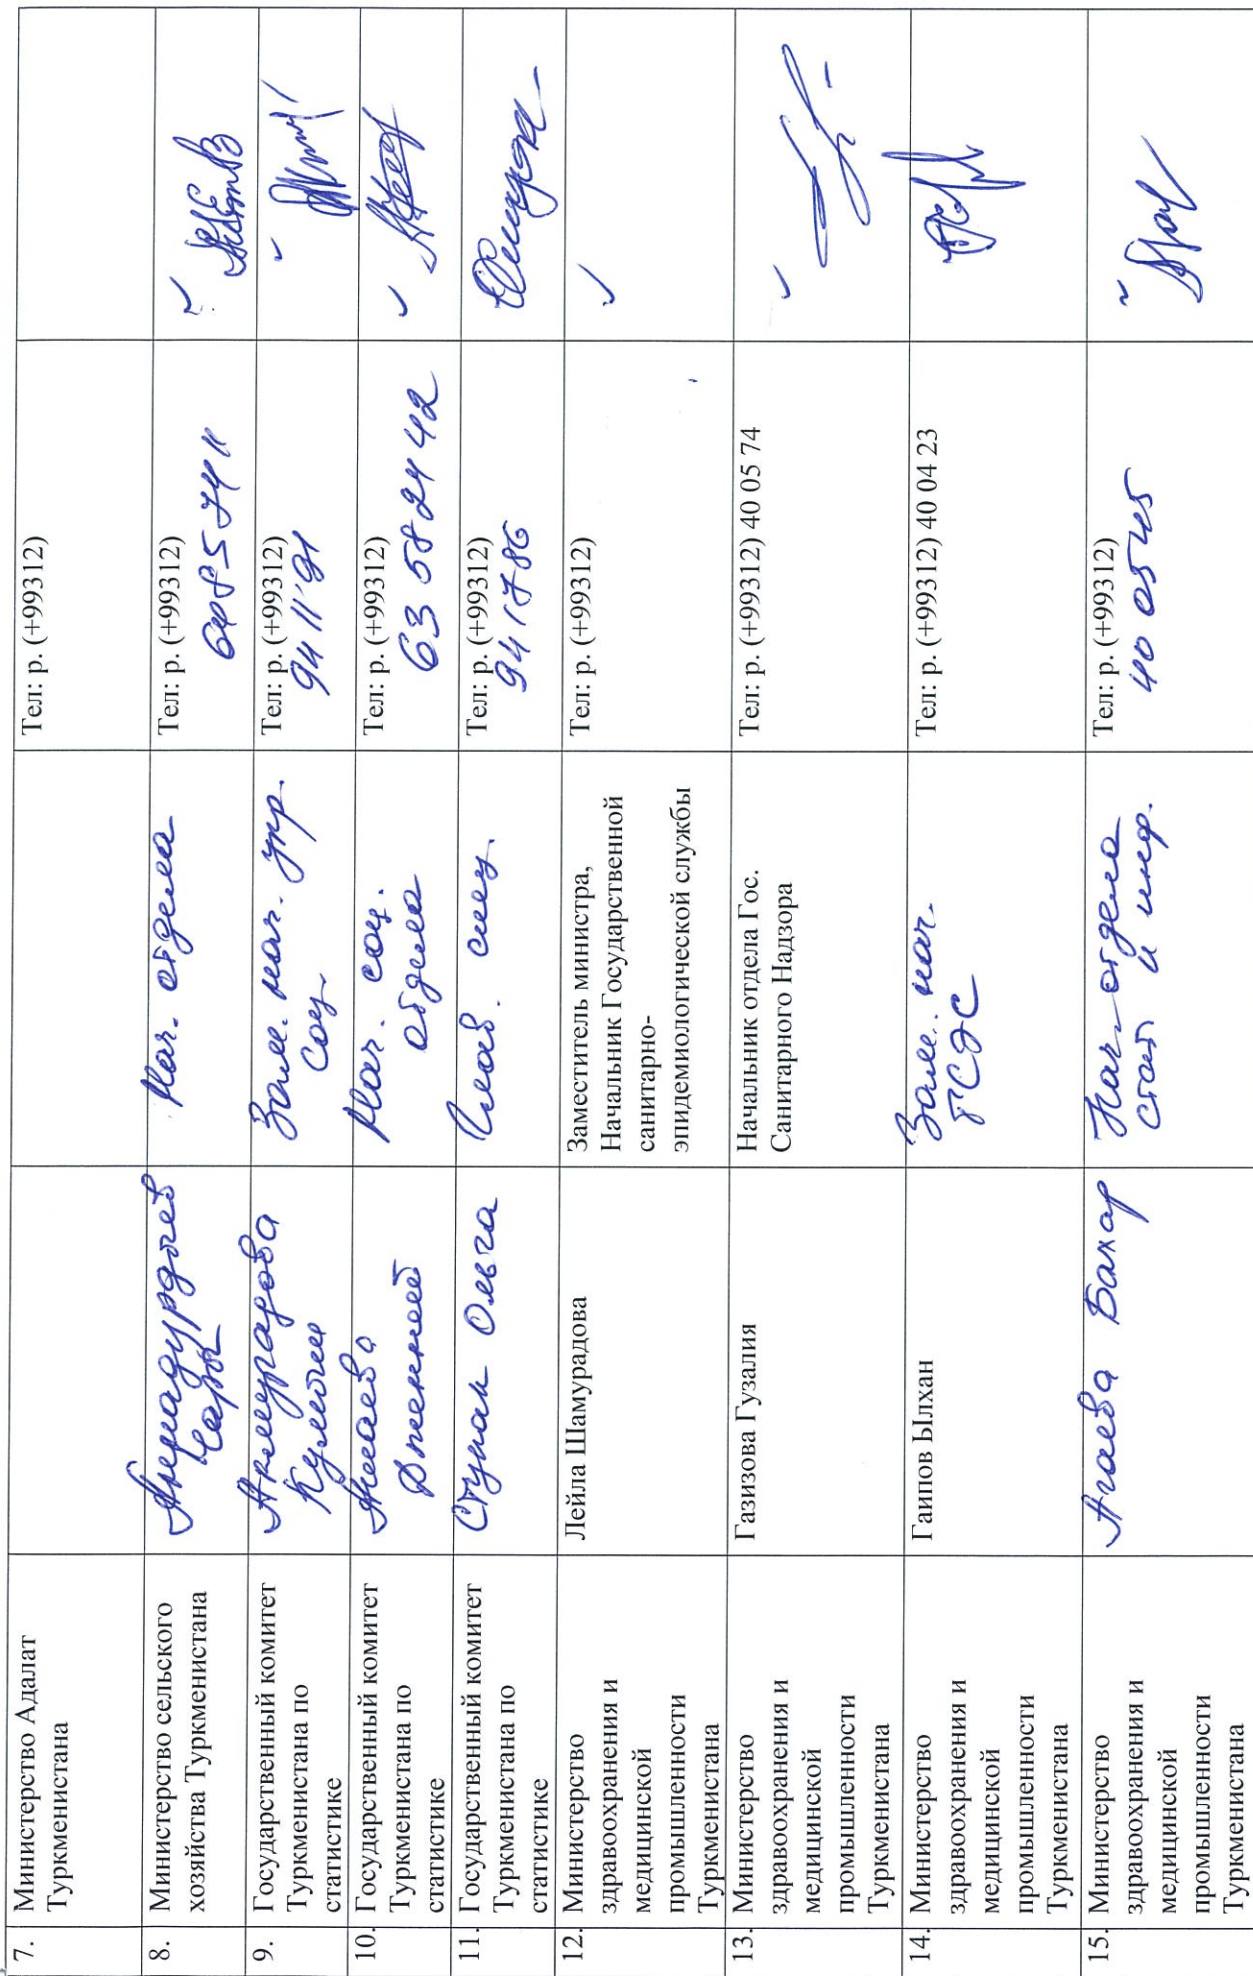 7.
Министерство Адалат
Туркменистана
Тел: р. (+99312)
8.
Министерство сельского
хозяйства Туркменистана
Аннадурдыев
Чары
Нач. отдела
Тел: р. (+99312)
9.
Государственный комитет
Туркменистана по
статистике
Акмурадова
Зам. нач. упр.
соц.
Тел: р. (+99312)
94 11 91
10.
Государственный комитет
Туркменистана по
статистике
Дженнет
Нач. соц.
отдела
Тел: р. (+99312)
63 58 24 42
11.
Государственный комитет
Туркменистана по
статистике
Ступак Ольга
Глав. спец.
Тел: р. (+99312)
94 17 86
12.
Министерство
здравоохранения и
медицинской
промышленности
Туркменистана
Лейла Шамурадова
Заместитель министра,
Начальник Государственной
санитарно-
эпидемиологической службы
Тел: р. (+99312)
13.
Министерство
здравоохранения и
медицинской
промышленности
Туркменистана
Газизова Гузалия
Начальник отдела Гос.
Санитарного Надзора
Тел: р. (+99312) 40 05 74
14.
Министерство
здравоохранения и
медицинской
промышленности
Туркменистана
Гаипов Ылхан
Зам. нач.
ГСЭС
Тел: р. (+99312) 40 04 23
15.
Министерство
здравоохранения и
медицинской
промышленности
Туркменистана
Агаева Бахар
Нач. отдела
стат и инф.
Тел: р. (+99312)
40 05 45